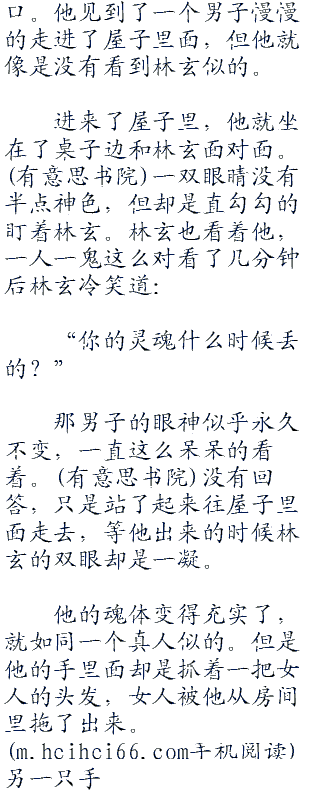 口。他见到了一个男子慢慢
的走进了屋子里面，但他就
像是没有看到林玄似的。
进来了屋子里，他就坐
在了桌子边和林玄面对面。
(有意思书院)一双眼睛没有
半点神色，但却是直勾勾的
盯着林玄。林玄也看着他，
一人一鬼这么对看了几分钟
后林玄冷笑道:
“你的灵魂什么时候丢
的？”
那男子的眼神似乎永久
不变，一直这么呆呆的看
着。(有意思书院)没有回
答，只是站了起来往屋子里
面走去，等他出来的时候林
玄的双眼却是一凝。
他的魂体变得充实了，
就如同一个真人似的。但是
他的手里面却是抓着一把女
人的头发，女人被他从房间
里拖了出来。
(m.hcihci66.com手机阅读)
另一只手